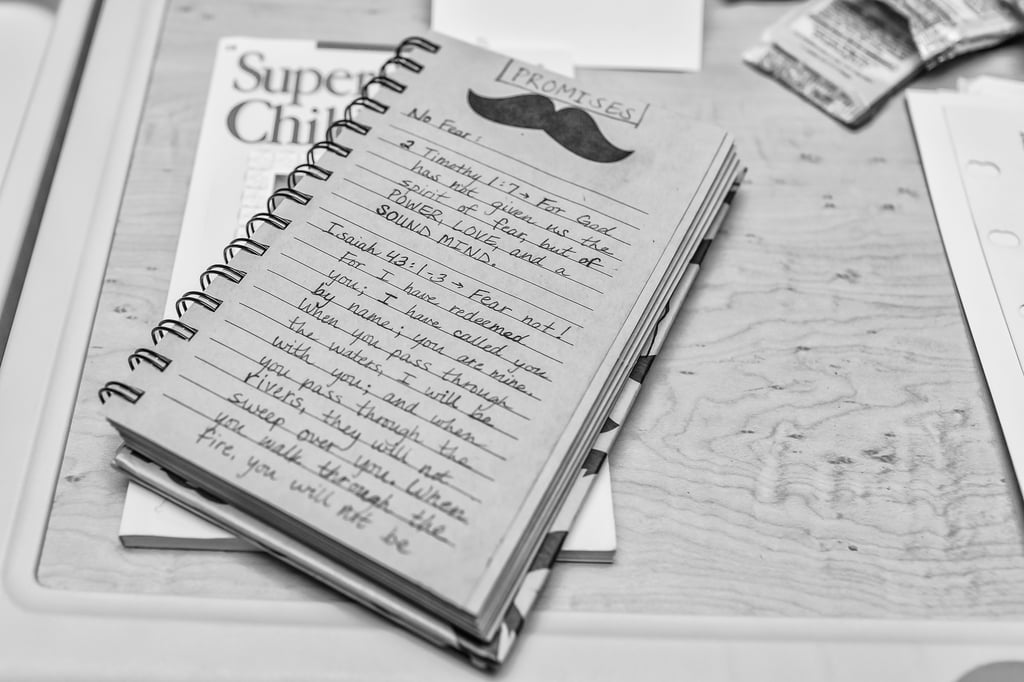 Super
Chil
PROMISES
No Fear:
2 Timothy 1:7 → For God
has not given us the
spirit of fear, but of
POWER, LOVE, and a
SOUND MIND.
Isaiah 43:1-3 → Fear not!
For I have redeemed
you; I have called you
by name; you are mine.
When you pass through
the waters, I will be
with you; and when
you pass through the
rivers, they will not
sweep over you. When
you walk through the
fire, you will not be